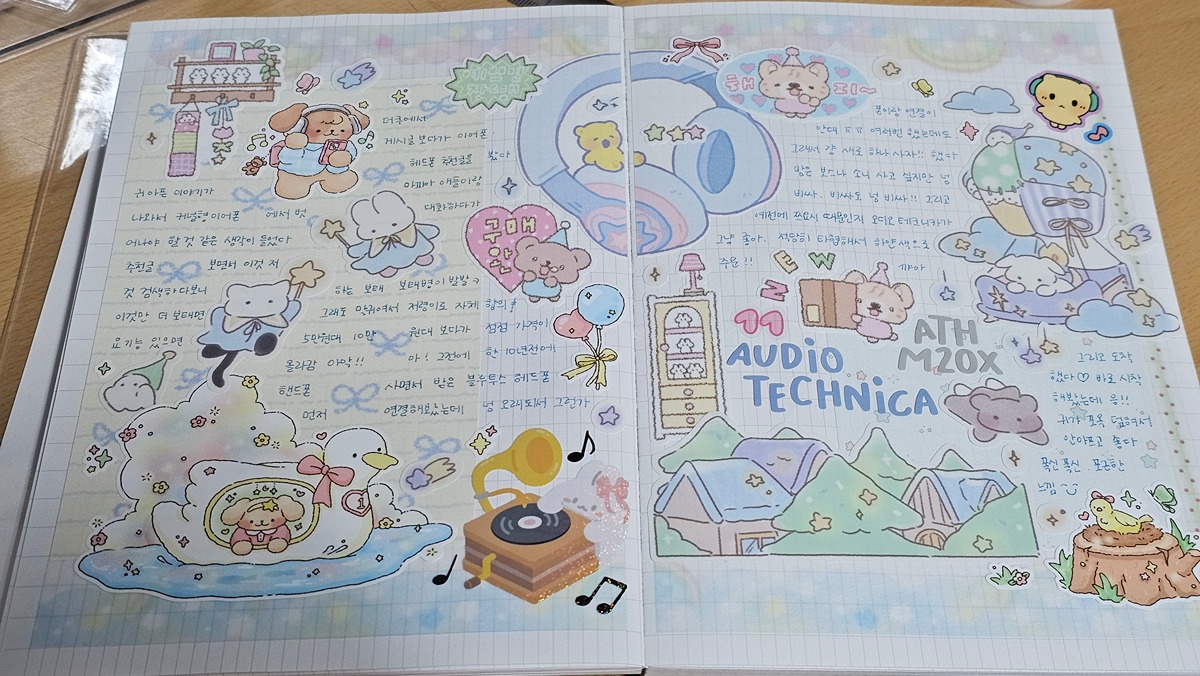 더쿠에서
게시글 보다가 이어폰
헤드폰 추천글을 봤아
귀 아픈 이야기가
마피아 애들이랑
나와서 커널형 이어폰 에서 벗
대화하다가
어나야 할 것 같은 생각이 들었다
추천글 보면서 이것 저
것 검색하다보니 하는 보태 보태병이 발발ㅋ
이것만 더 보태면 그래도 말귀여서 저렴이로 자체 합의!
요기능 있으면 5만원대 10만 원대 보다가 점점 가격이
올라감 아악!! 아! 그전에 한 10년전에
핸드폰 사면서 받은 블루투스 헤드폰
먼저 연결해봤는데 넘 오래되서 그런가
구매
완
1
폰이랑 연결이
안돼 ㅠㅠ 여러번 했는데도
그래서 걍 새로 하나 사자!! 했아
맘은 보스나 소니 사고 싶지만 넘
비싸. 비싸도 넘 비싸!! 그리고
예전에 쓰요시 때문인지 오디오 테크니카가
그냥 좋아. 적당히 타협해서 하얀색으로
주문!! 꺄아
NEW
AUDIO
TECHNICA
ATH
M20X
그리고 도착
했다♡ 바로 시작
해봤는데 음!!
귀가 포옥 덮여서
안아프고 좋다
폭신폭신. 포근한
느낌